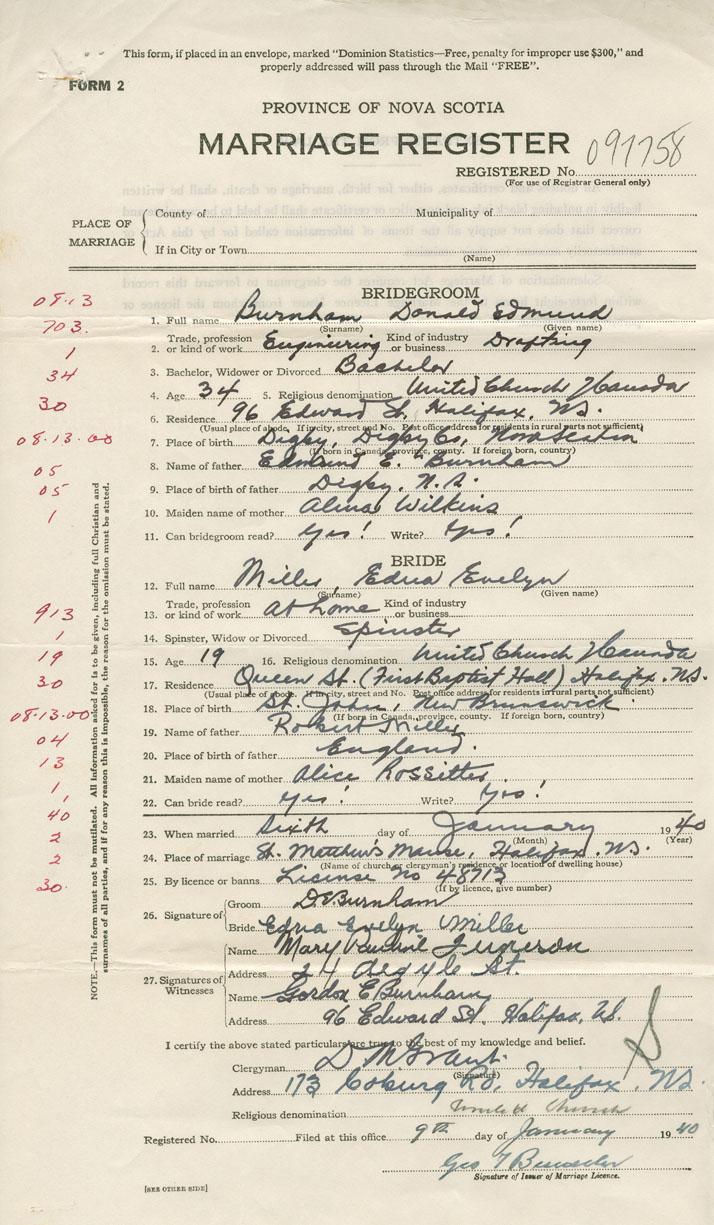 This form, if placed in an envelope, marked "Dominion Statistics—Free, penalty for improper use $300," and
properly addressed will pass through the Mail "FREE".
FORM 2
PROVINCE OF NOVA SCOTIA
MARRIAGE REGISTER
097758
REGISTERED No.
(For use of Registrar General only)
PLACE OF MARRIAGE
County of Municipality of
If in City or Town
(Name)
BRIDEGROOM
08.13
1. Full name Burnham Donald Edmund
(Surname) (Given name)
703.
2. Trade, profession or kind of work Engineering Kind of industry or business Drafting
1
3. Bachelor, Widower or Divorced Bachelor
34
4. Age 34 5. Religious denomination United Church Canada
30
6. Residence 96 Edward St. Halifax, N.S.
(Usual place of abode. If in city, street and No. Post office address for residents in rural parts not sufficient)
08.13.00
7. Place of birth Digby, Digby Co, Nova Scotia
(If born in Canada, province, county. If foreign born, country)
8. Name of father Edmund E. Burnham
05
9. Place of birth of father Digby, N.S.
05
10. Maiden name of mother Alma Wilkins
1
11. Can bridegroom read? Yes! Write? Yes!
BRIDE
12. Full name Miller, Edna Evelyn
(Surname) (Given name)
913
13. Trade, profession or kind of work At home Kind of industry or business
1
14. Spinster, Widow or Divorced Spinster
19
15. Age 19 16. Religious denomination United Church Canada
30
17. Residence Queen St. (First Baptist Hall) Halifax, N.S.
(Usual place of abode. If in city, street and No. Post office address for residents in rural parts not sufficient)
08.13.00
18. Place of birth St. John, New Brunswick
(If born in Canada, province, county. If foreign born, country)
04
19. Name of father Robert Miller
13
20. Place of birth of father England.
1
21. Maiden name of mother Alice Rossiter
1
22. Can bride read? Yes! Write? Yes!
40
23. When married Sixth day of January 1940
(Month) (Year)
2
24. Place of marriage St. Matthew's Manse, Halifax, N.S.
(Name of church or clergyman's residence or location of dwelling house)
2
25. By licence or banns License No 48713
(If by licence, give number)
30.
26. Signature of
Groom D. E. Burnham
Bride Edna Evelyn Miller
27. Signatures of Witnesses
Name Mary Ferguson
Address 24 Argyle St.
Name Gordon E Burnham
Address 96 Edward St. Halifax, N.S.
I certify the above stated particulars are true to the best of my knowledge and belief.
Clergyman D M Grant.
(Signature)
Address 173 Coburg Rd, Halifax, N.S.
Religious denomination United Church
Registered No. Filed at this office 9th day of January 1940
Geo
Signature of Issuer of Marriage Licence.
[SEE OTHER SIDE]
NOTE.—This form must not be mutilated. All Information asked for is to be given, including full Christian and
surnames of all parties, and if for any reason this is impossible, the reason for the omission must be stated.